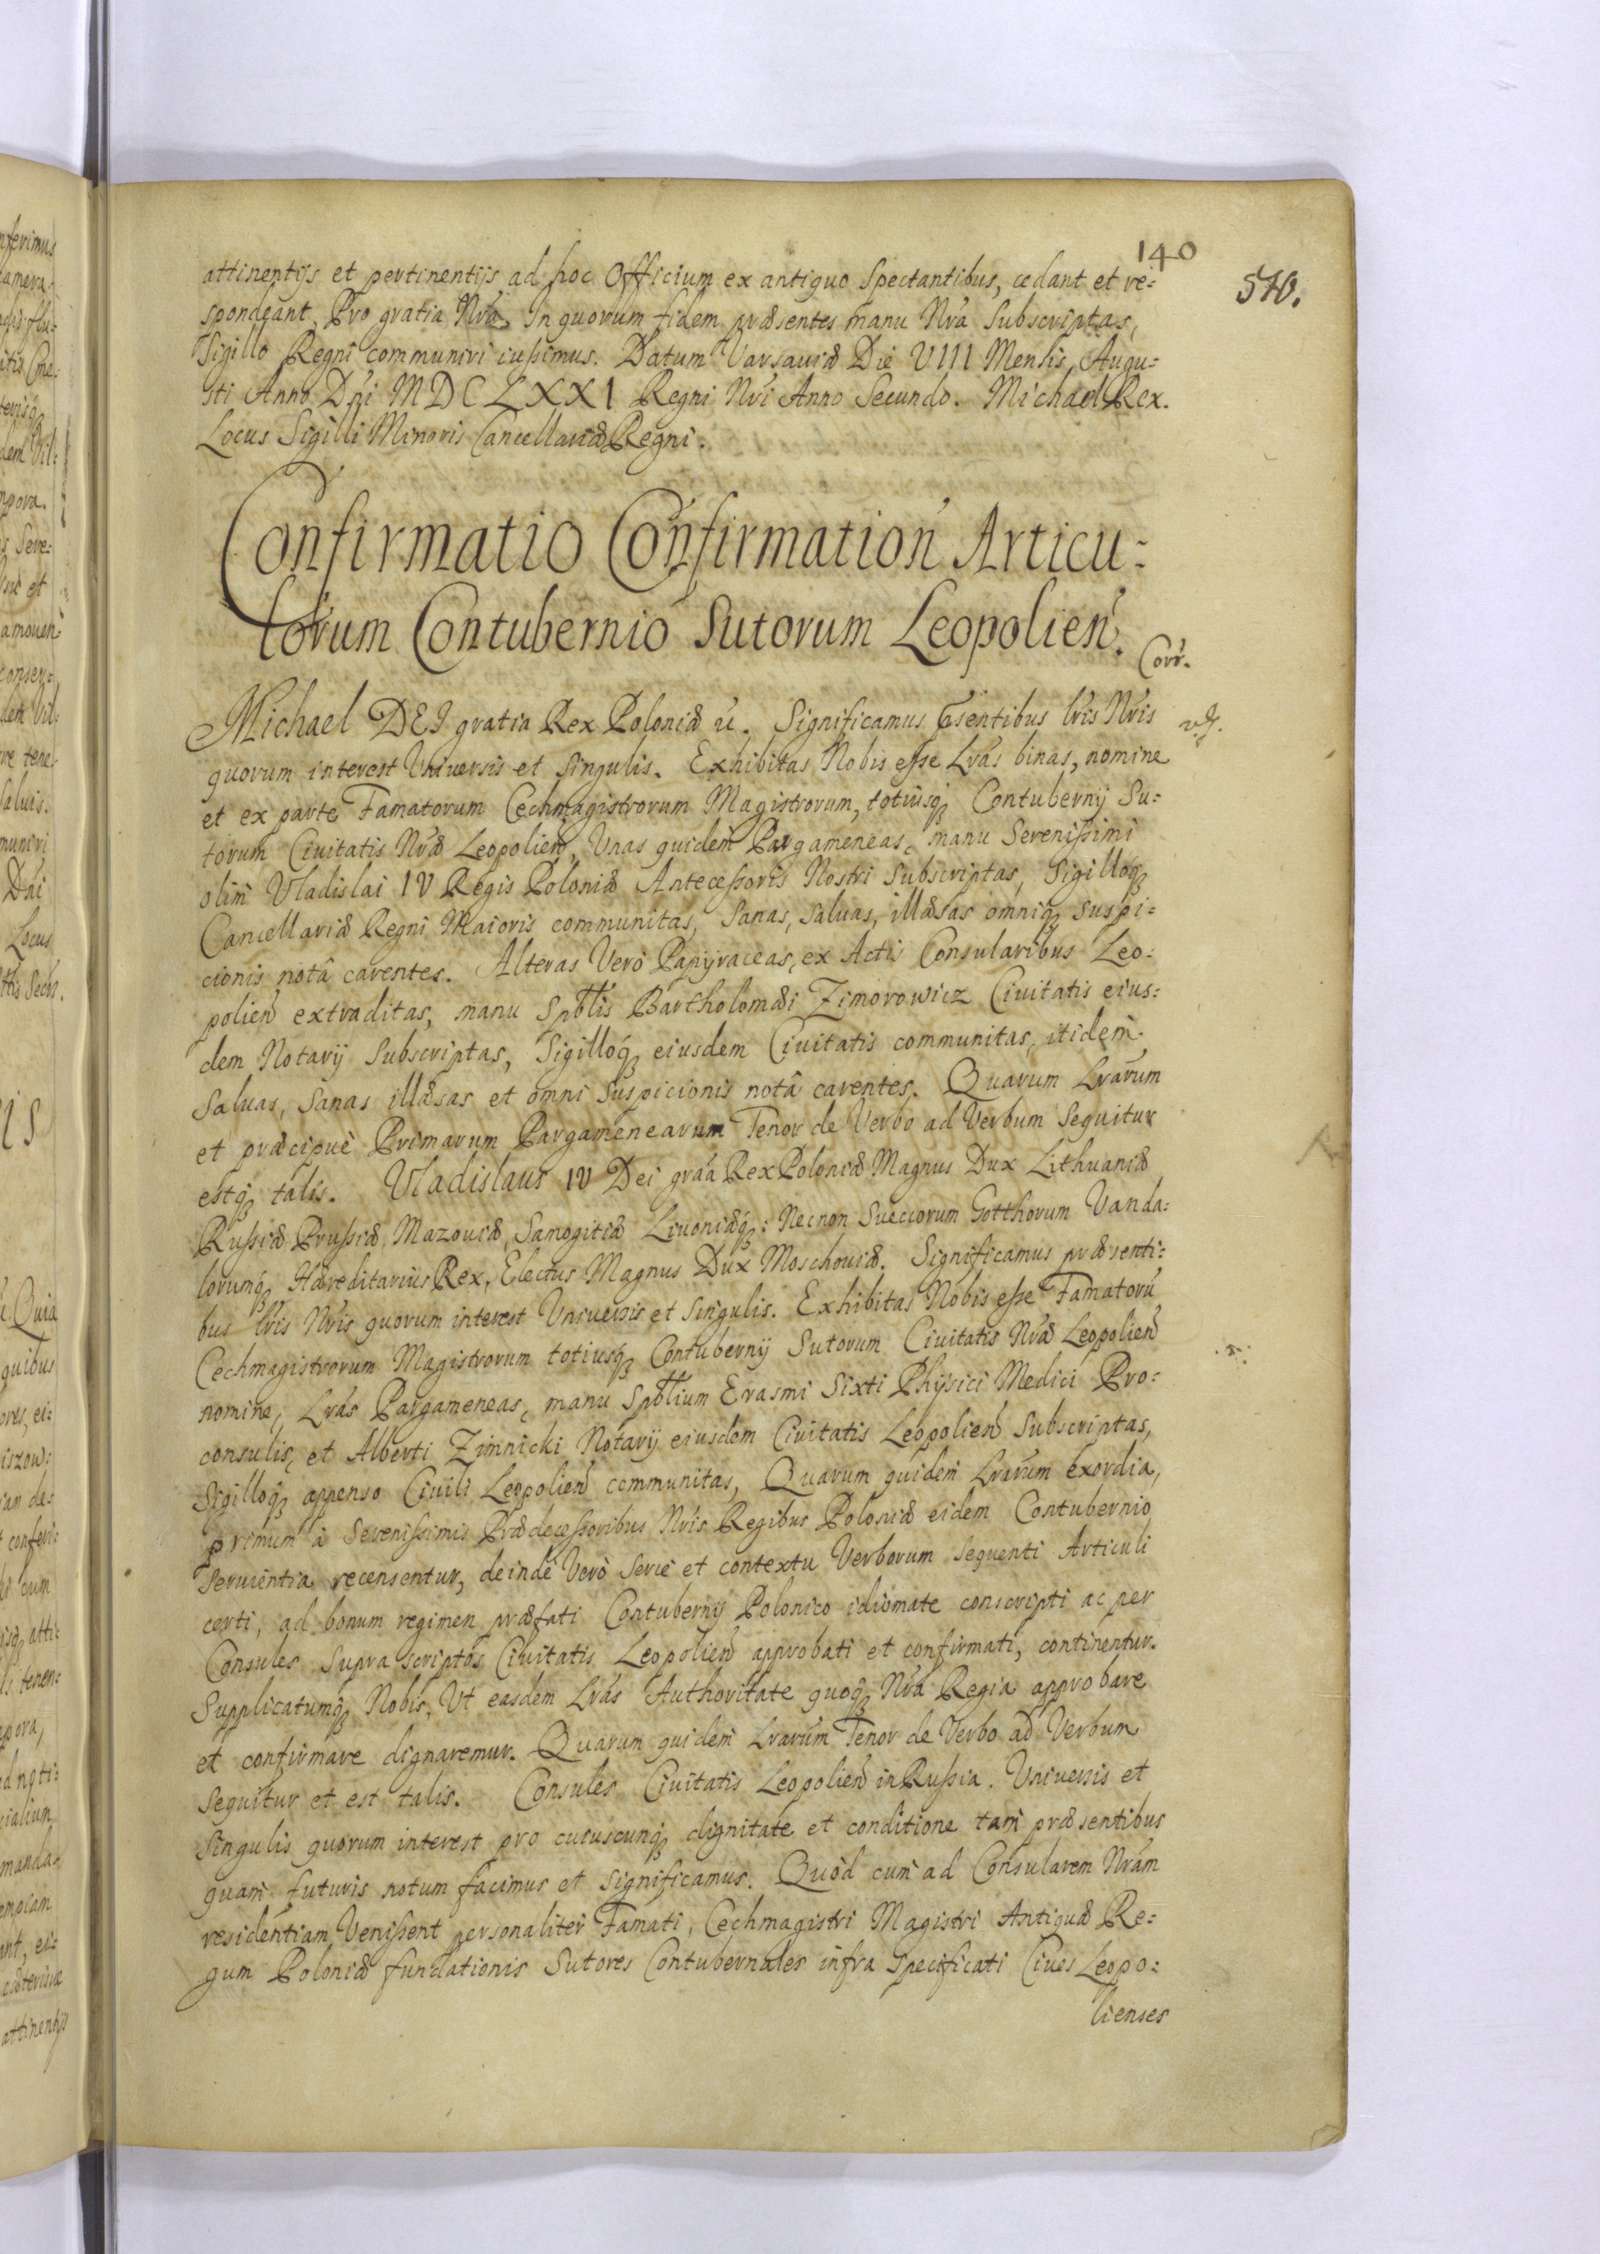 140
570.
attinentijs et pertinentijs ad hoc Officium ex antiquo spectantibus, cedant et re:
spondeant, Pro gratia Nrã. In quorum fidem præsentes manu Nrã Subscriptas,
Sigillo Regni communiri iussimus. Datum Varsauiæ Die VIII Mensis Augu:
sti Anno Dni MDCLXXI Regni Nri Anno Secundo. Michael Rex.
Locus Sigilli Minoris Cancellariæ Regni.
Confirmatio Confirmation Articu:
lorum Contubernio Sutorum Leopolien.
Corr.
Michael DEI gratia Rex Poloniæ &. Significamus Pñsentibus lris Nris
quorum interest Vniuersis et singulis. Exhibitas Nobis esse Lras binas, nomine
et ex parte Famatorum Cechmagistrorum Magistrorum, totiusq3 Contubernij Su:
torum Ciuitatis Nræ Leopolien, Vnas quidem Pargameneas, manu Serenissimi
olim Vladislai IV Regis Poloniæ Antecessoris Nostri Subscriptas, Sigilloq3
Cancellariæ Regni Maioris communitas, sanas, saluas, illæsas omniq3 suspi:
cionis notâ carentes. Alteras Verò Papyraceas, ex Actis Consularibus Leo:
polien extraditas, manu Spblis Bartholomæi Zimorowicz Ciuitatis eius:
dem Notarij Subscriptas, Sigilloq3 eiusdem Ciuitatis communitas, itidem
saluas, sanas illæsas et omni suspicionis notâ carentes. Quarum Lrarum
et præcipuè Primarum Pargamenearum Tenor de Verbo ad Verbum Sequitur
estq3 talis. Vladislaus IV Dei grãa Rex Poloniæ Magnus Dux Lithuaniæ
Russiæ Prussiæ, Mazouiæ, Samogitiæ Liuoniæq3: Necnon Sueciorum Gotthorum Vanda:
lorumq3 Hæreditarius Rex, Electus Magnus Dux Moschouiæ. Significamus præsenti:
bus lris Nris quorum interest Vniuersis et singulis. Exhibitas Nobis esse Famatorũ
Cechmagistrorum Magistrorum totiusq3 Contubernij Sutorum Ciuitatis Nræ Leopolien
nomine, Lras Pargameneas, manu Spblium Erasmi Sixti Physici Medici Pro:
consulis, et Alberti Zimnicki Notarij eiusdem Ciuitatis Leopolien Subscriptas,
Sigilloq3 appenso Ciuili Leopolien communitas, Quarum quidem Lrarum exordia,
primum à Serenissimis Prædecessoribus Nris Regibus Poloniæ eidem Contubernio
seruientia recensentur, deinde Verò serie et contextu Verborum sequenti Articuli
certi, ad bonum regimen præfati Contubernij Polonico idiomate conscripti ac per
Consules Supra scriptos Ciuitatis Leopolien approbati et confirmati, continentur.
Supplicatumq3 Nobis, Vt easdem Lras Authoritate quoq3 Nrã Regia approbare
et confirmare dignaremur. Quarum quidem Lrarum Tenor de Verbo ad Verbum
sequitur et est talis. Consules Ciuitatis Leopolien in Russia. Vniuersis et
singulis quorum interest pro cuiuscunq3 dignitate et conditione tam præsentibus
quam futuris notum facimus et significamus. Quòd cum ad Consularem Nram
residentiam Venissent personaliter Famati, Cechmagistri Magistri Antiquæ Re:
gum Poloniæ fundationis Sutores Contubernales infra specificati Ciues Leopo:
lienses